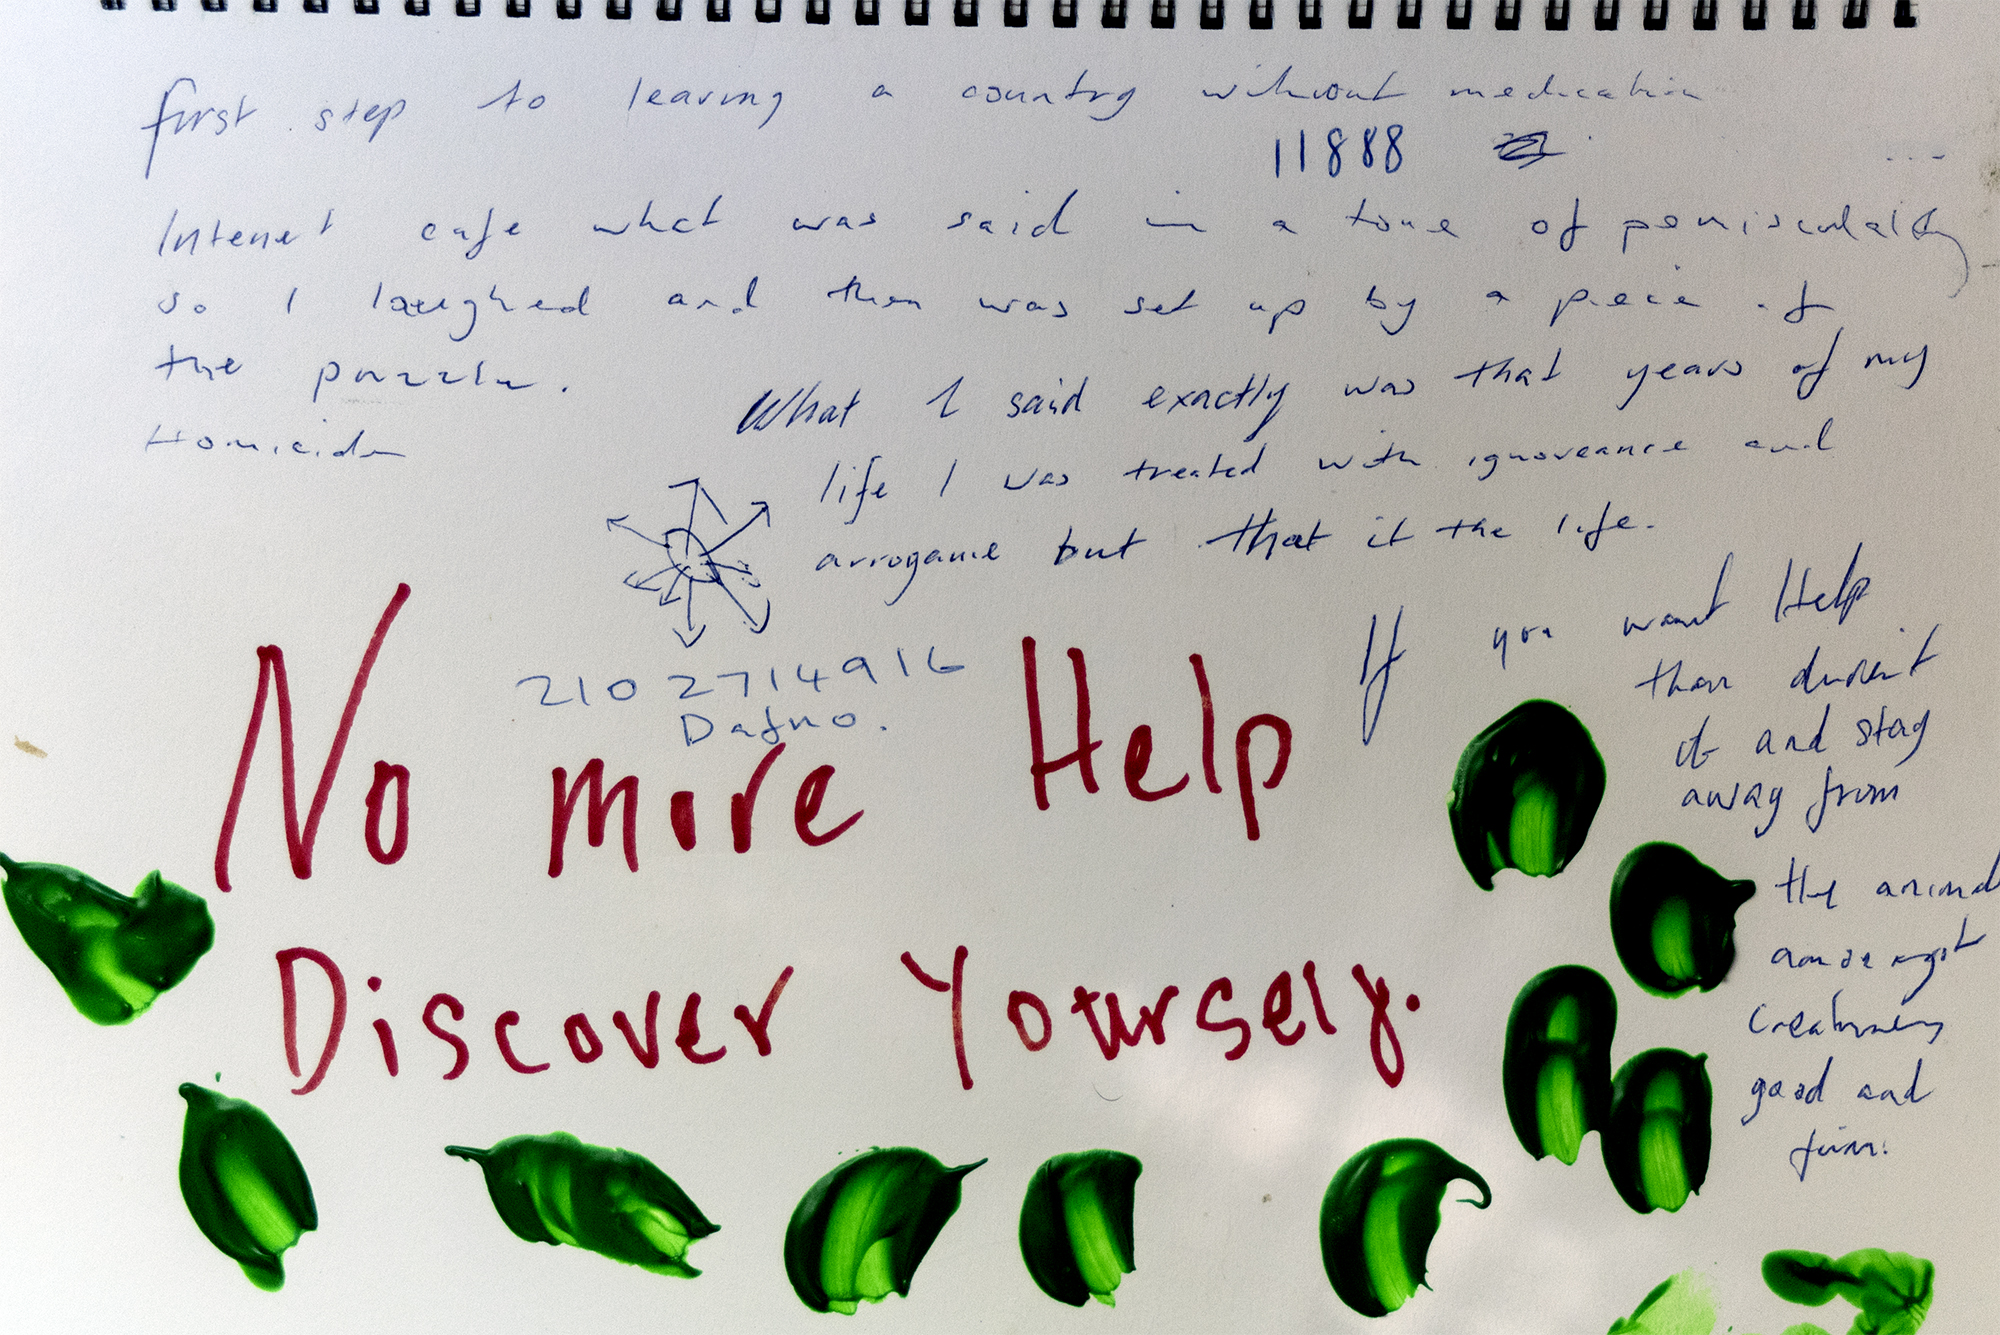 first step to leaving a country without medication
11888
Intenet cafe what was said in a tone of
so I laughed and then was set up by a piece of
the puzzle.
What I said exactly was that years of my
Homicide
life I was treated with ignoreance and
arrogance but that it the life.
If you want Help
then
it and stay
away from
the animal
210 2714916
Dafno.
No more Help
good and
Discover Yourself.